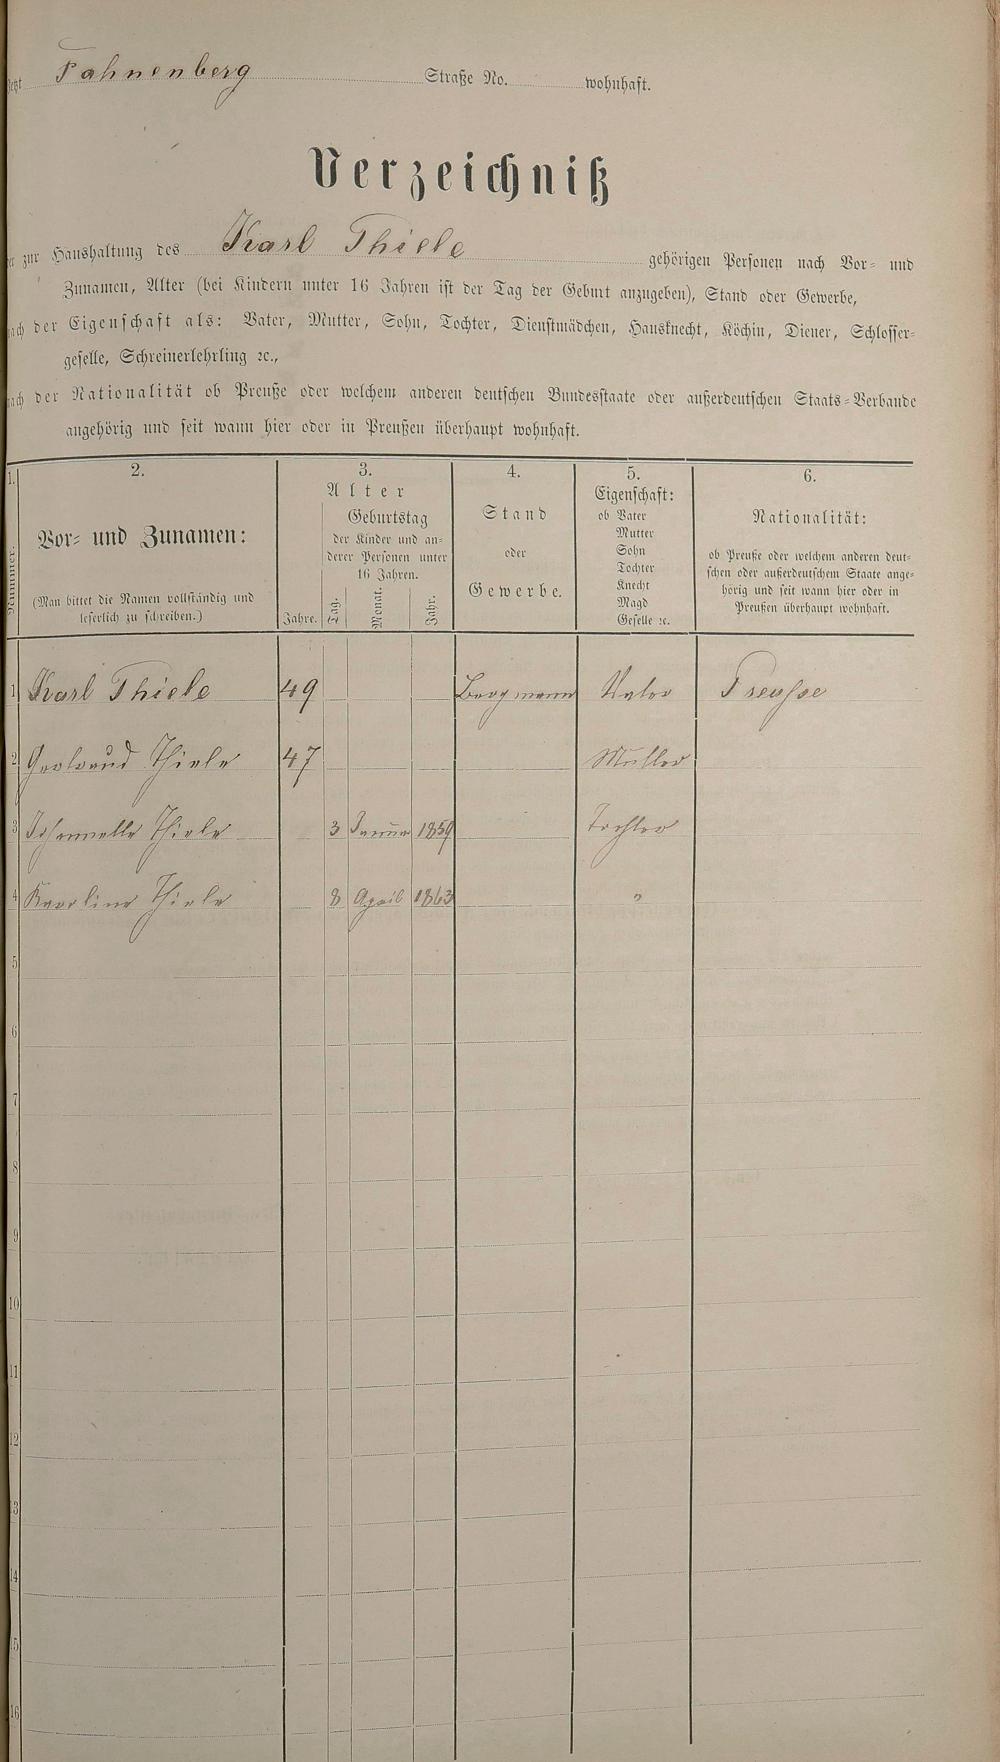 Fahnenberg Straße No. wohnhaft.
Verzeichniß
zur Haushaltung des Karl Thiele gehörigen Personen nach Vor- und
Zunamen, Alter (bei Kindern unter 16 Jahren ist der Tag der Geburt anzugeben), Stand oder Gewerbe,
nach der Eigenschaft als: Vater, Mutter, Sohn, Tochter, Dienstmädchen, Hausknecht, Köchin, Diener, Schlosser-
geselle, Schreinerlehrling ꝛc.,
nach der Nationalität ob Preuße oder welchem anderen deutschen Bundesstaate oder außerdeutschen Staats-Verbande
angehörig und seit wann hier oder in Preußen überhaupt wohnhaft.
1. 2. 3. 4. 5. 6.
Nummer.
Vor- und Zunamen:
(Man bittet die Namen vollständig und
leserlich zu schreiben.)
Alter
Jahre.
Geburtstag
der Kinder und an-
derer Personen unter
16 Jahren.
Tag. Monat. Jahr.
Stand
oder
Gewerbe.
Eigenschaft:
ob Vater
Mutter
Sohn
Tochter
Knecht
Magd
Geselle ꝛc.
Nationalität:
ob Preuße oder welchem anderen deut-
schen oder außerdeutschem Staate ange-
hörig und seit wann hier oder in
Preußen überhaupt wohnhaft.
1 Karl Thiele 49 Bergmann Vater Preusse
2 Gertraud Thiele 47 Mutter
3 Thiele 3 Januar 1859 Tochter
4 Karoline Thiele 8 April 1863 "
5
6
7
8
9
10
11
12
13
14
15
16